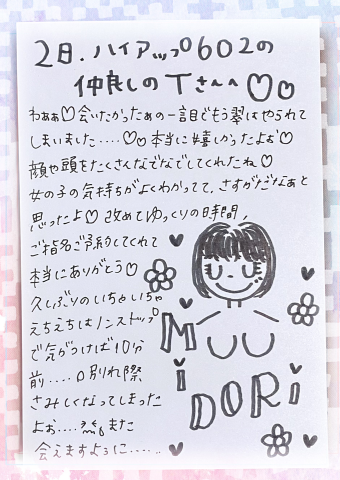 2日.ハイアップ602の
仲良しのTさんへ♡♡
わぁぁ♡会いたかったぁの一言でもう翠はやられて
しまいました....♡♡本当に嬉しかったよぉ♡
顔や頭をたくさんなでなでしてくれたね♡
女の子の気持ちがよくわかってて,さすがだなぁと
思ったよ♡改めてゆっくりの時間,
ご指名ご予約してくれて
本当にありがとう♡
久しぶりのいちゃいちゃ
えちえちはノンストップ
で気がつけば10分
前....お別れ際
さみしくなってしまった
よぉ....また
会えますように.....
MiDORi